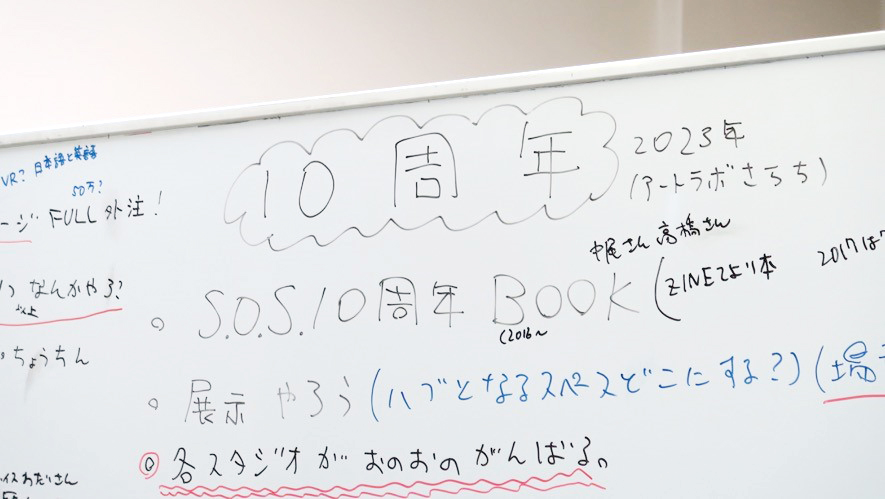 VR? 日本語と英語
50万?
ージ FULL 外注!
なんかやろ?
以上
ちょうちん
10周年
2023年
(アートラボさらち)
中尾さん 高橋さん
。S.O.S.10周年 BOOK (ZINEてより本 2017は
(2016〜
。展示やろう (ハブとなるスペースどこにする?) (場
◎各スタジオがおのおのがんばる。
わたさん